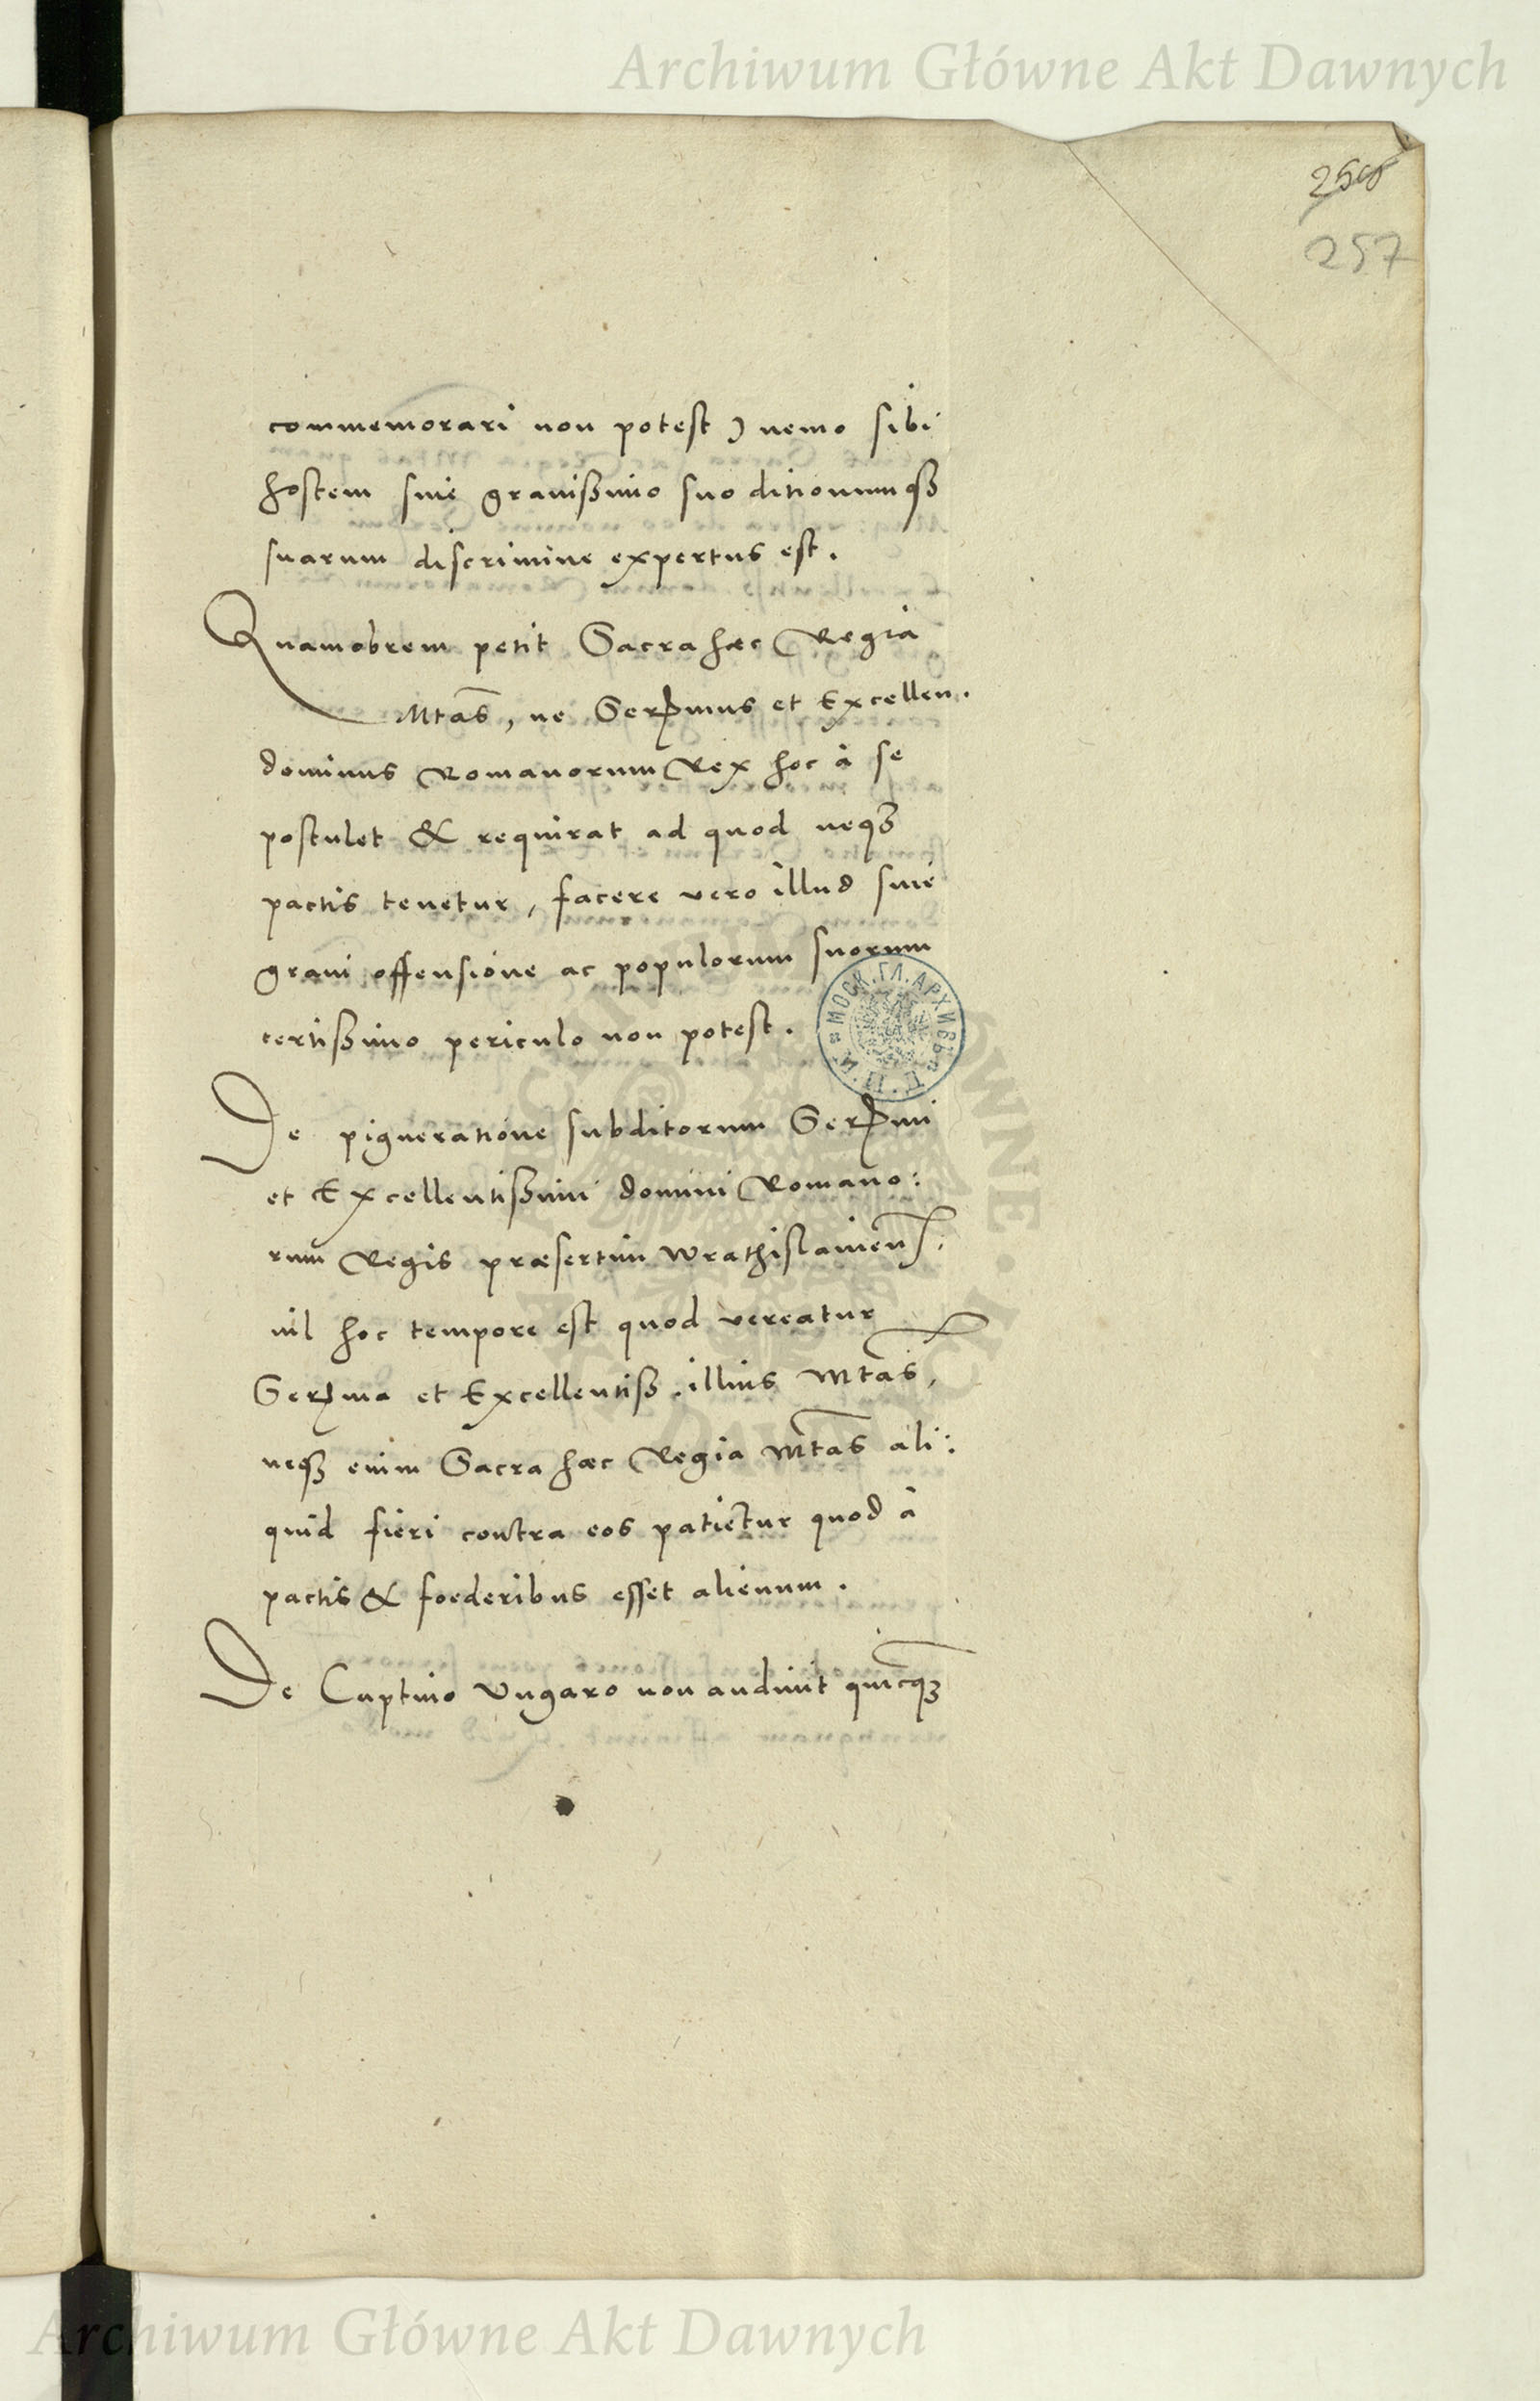 Archiwum Główne Akt Dawnych
257
commemorari non potest) nemo sibi
hostem sine grauißimo suo ditionumqȝ
suarum discrimine expertus est.
Quamobrem petit Sacra hæc Regia
Mtas, ne Serꝫmus et Excellen.
dominus Romanorum Rex hoc à se
postulet & requirat ad quod neqȝ
pactis tenetur, facere vero illud sine
graui offensione ac populorum suorum
certißimo periculo non potest.
МОСК. ГЛ. АРХИВЪ
De pigneratione subditorum Serꝫmi
et Excellentißimi domini Romano:
rum Regis præsertim Wrathislauien.
nil hoc tempore est quod vereatur
Serꝫma et Excellentiß. illius Mtas,
neqȝ enim Sacra hæc Regia Mtas ali:
quid fieri contra eos patietur quod à
pactis & foederibus esset alienum.
De Captiuo Vngaro non audiuit quicqȝ
Archiwum Główne Akt Dawnych